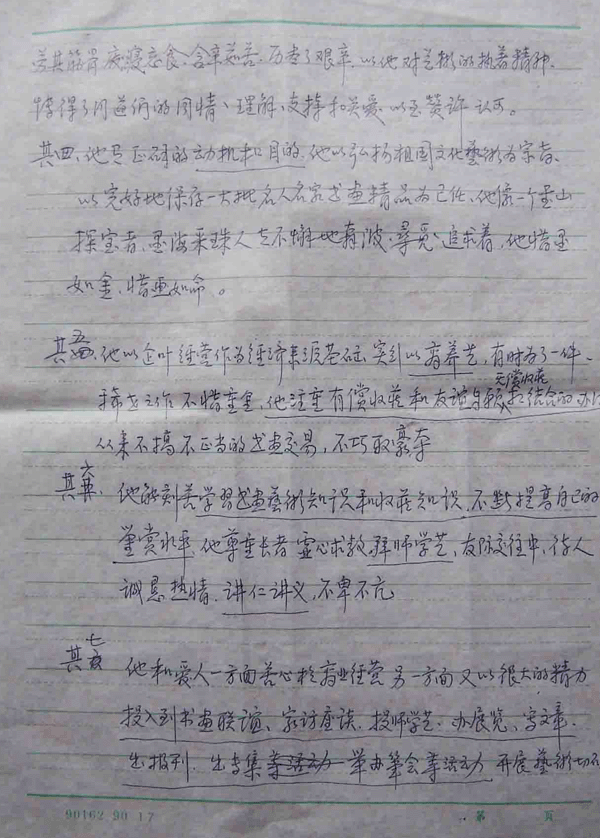 劳其筋骨废寝忘食、含辛茹苦、历尽了艰辛、以他对艺术的执着精神、
博得了同道们的同情、理解、支持和关爱、以至赞许、认可。
其四、他有正确的动机和目的、他以弘扬祖国文化藝術为宗旨、
以完好地保存一大批名人名家书画精品为己任、他像一个金山
探宝者、墨海采珠人在不懈地奔波、尋觅、追求着、他惜墨
如金、惜画如命。
其五、他以企叶经营作为经济来源基础、实行以商养艺、有时为了一件
稀世之作不惜重金、他注重有偿收藏和友谊自願无偿收藏相结合的办
从来不搞不正当的书画交易、不巧取豪夺
其六、他能刻苦学習书画藝術知识和收藏知识、不断提高自己的
鉴赏水平、他尊重长者虚心求教、拜师学艺、友际交往中、待人
诚恳热情、讲仁讲义、不卑不亢
其七 他和爱人一方面苦心于商业经营另一方面又以很大的精力
投入到书画联谊、家访座谈、投师学艺、办展览、写文章、
出报刊、出专集等活动 举办筆会等活动 开展藝術切
90162 90 17
第 页